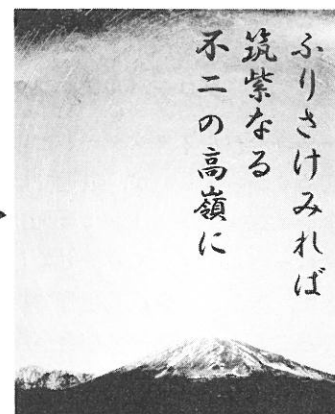 ふりさけみれば
筑紫なる
不二の高嶺に